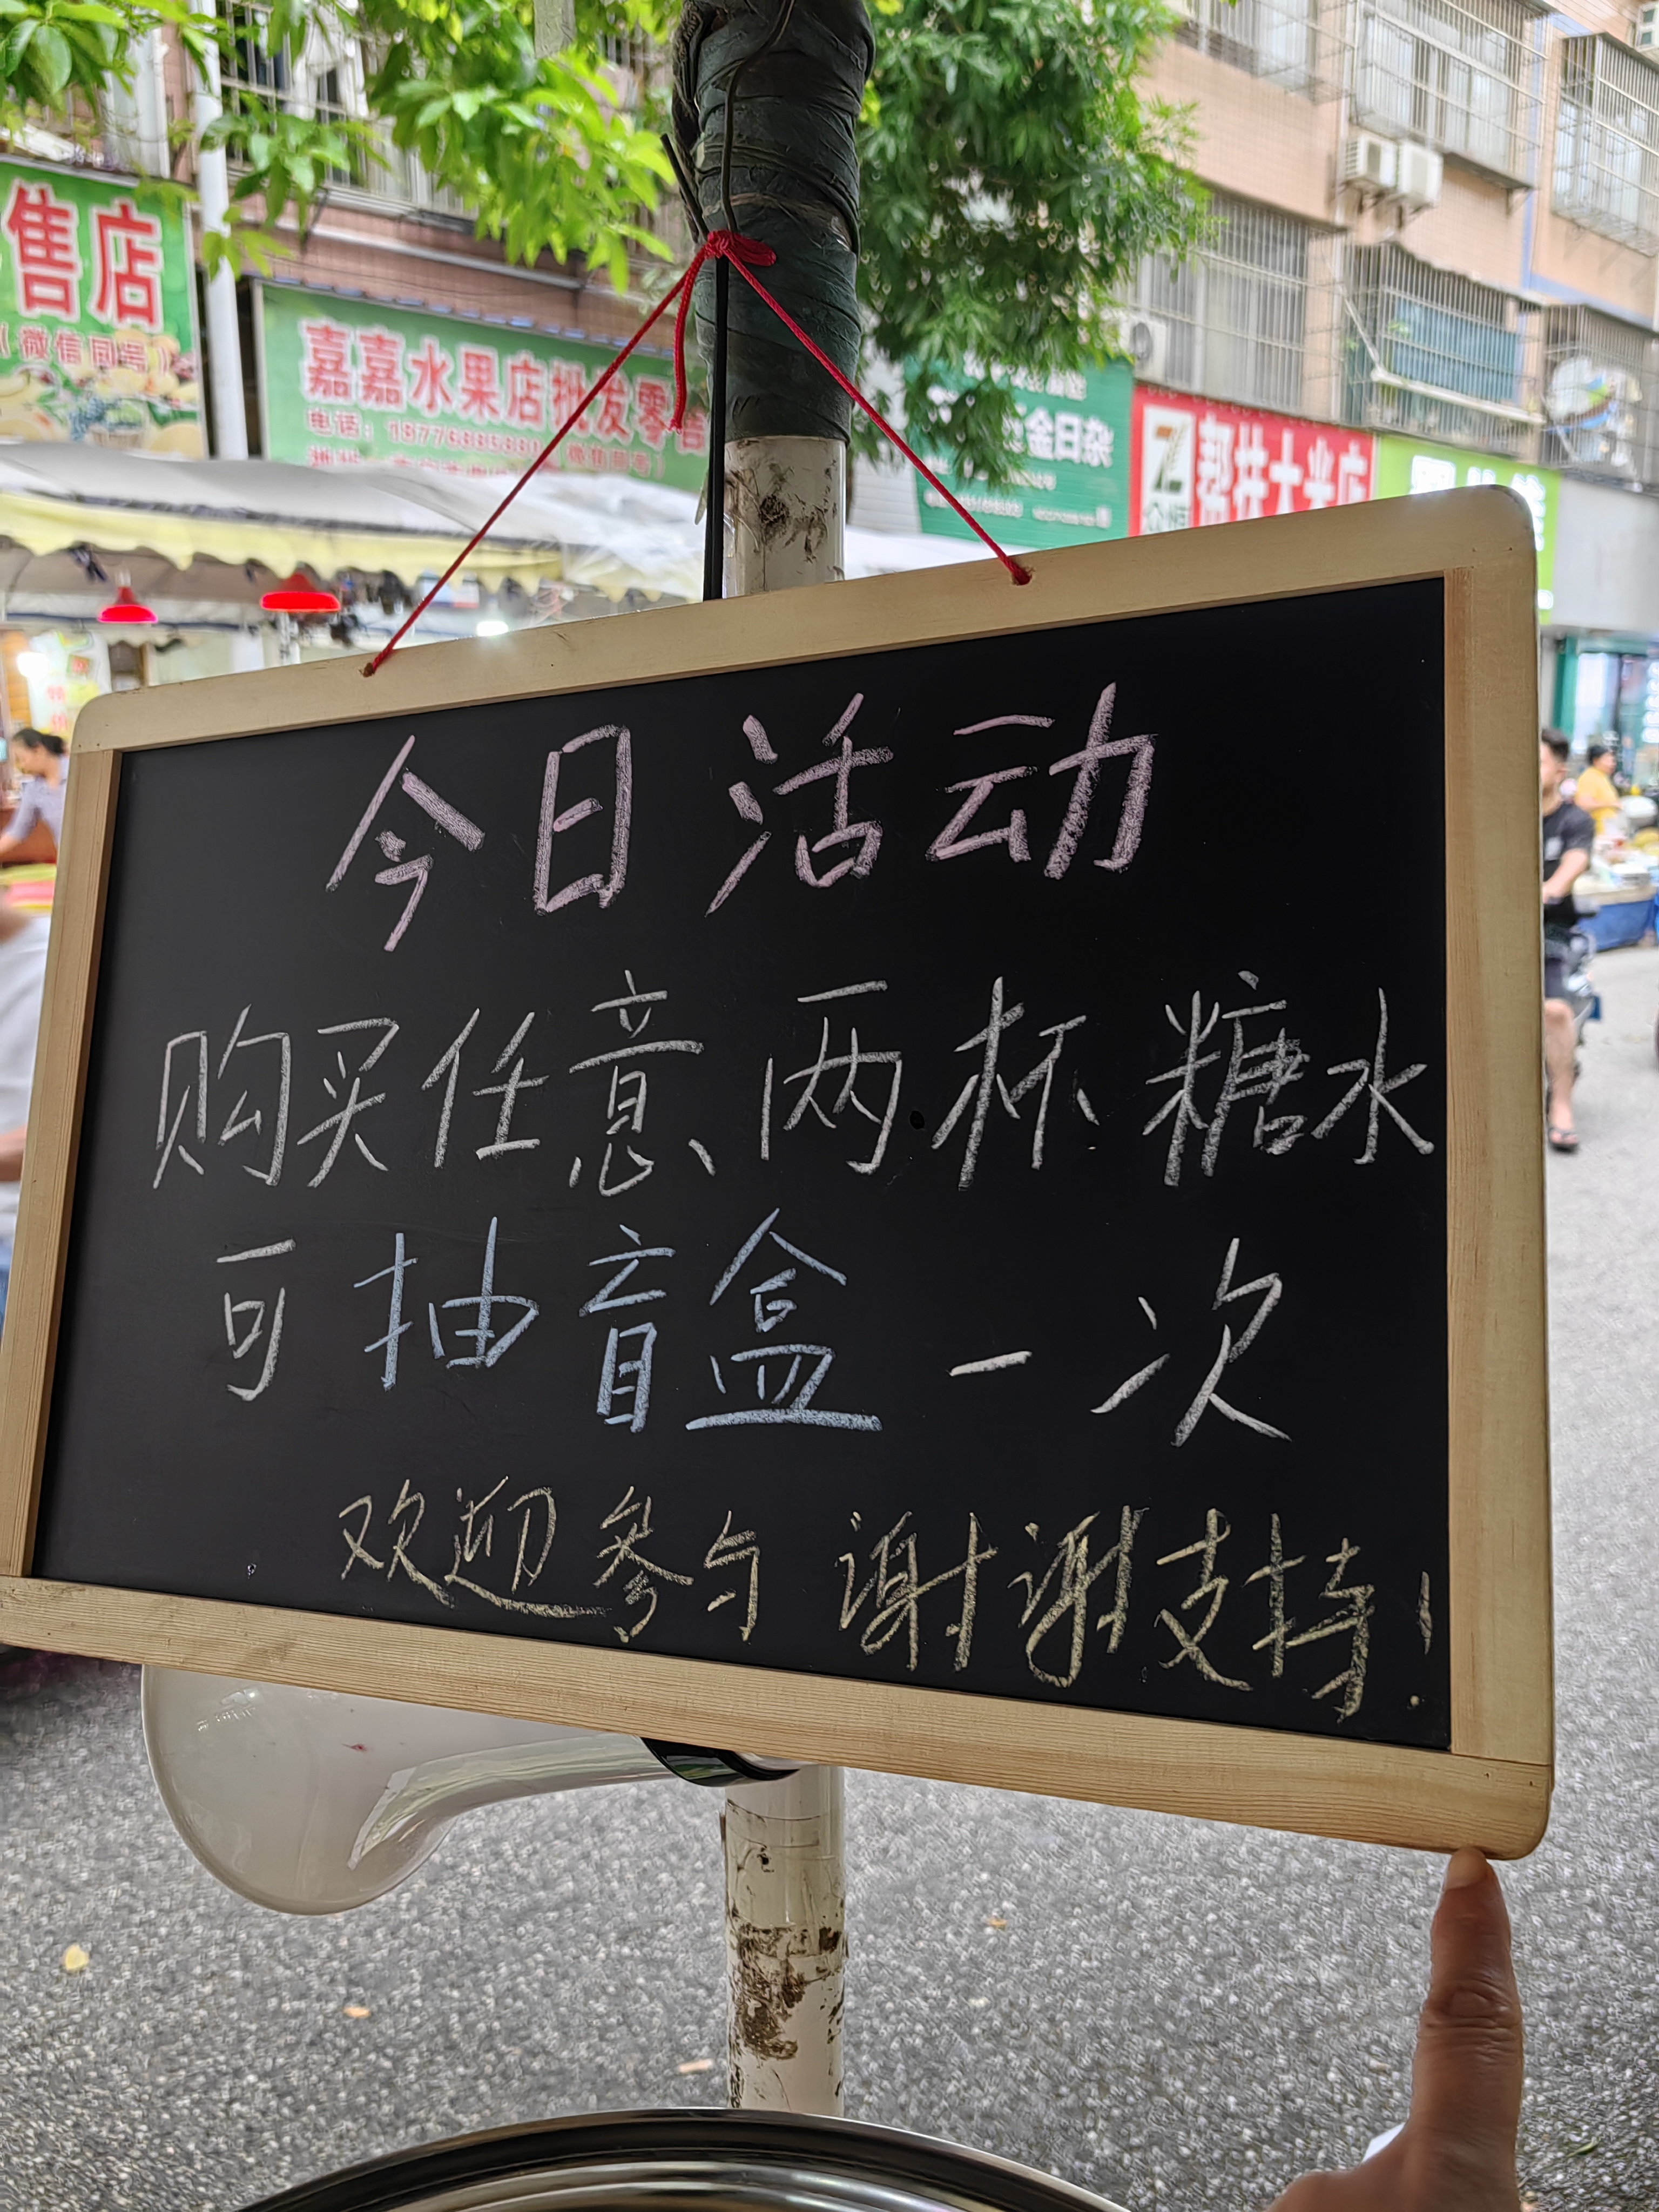 售店
（微信同号）
嘉嘉水果店批发零售
电话：
金日杂
帮扶大米店
今日活动
购买任意两杯糖水
可抽盲盒一次
欢迎参与 谢谢支持！